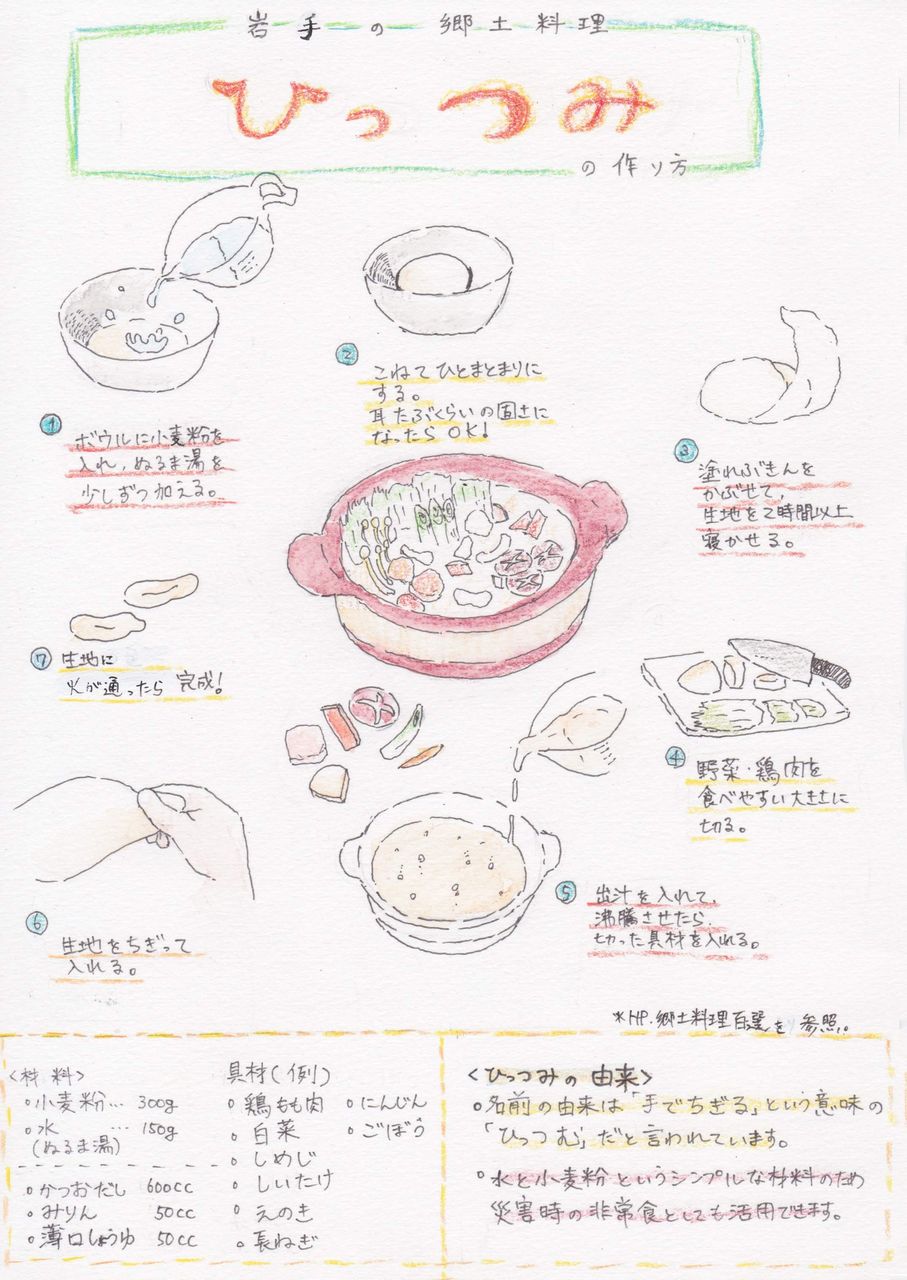 岩手の郷土料理
ひっつみ
の作り方
1
ボウルに小麦粉を
入れ、ぬるま湯を
少しずつ加える。
2
こねてひとまとまりに
する。
耳たぶくらいの固さに
なったらOK!
3
塗れぶきんを
かぶせて、
生地を2時間以上
寝かせる。
4
野菜・鶏肉を
食べやすい大きさに
切る。
5
出汁を入れて、
沸騰させたら、
切った具材を入れる。
6
生地をちぎって
入れる。
7
生地に
火が通ったら 完成!
*HP.郷土料理百選を参照。
<材料>
○小麦粉… 300g
○水 … 150g
(ぬるま湯)
○かつおだし 600cc
○みりん 50cc
○薄口しょうゆ 50cc
具材(例)
○鶏もも肉
○白菜
○しめじ
○しいたけ
○えのき
○長ねぎ
○にんじん
○ごぼう
<ひっつみの由来>
○名前の由来は「手でちぎる」という意味の
「ひっつむ」だと言われています。
○水と小麦粉というシンプルな材料のため
災害時の非常食としても活用できます。